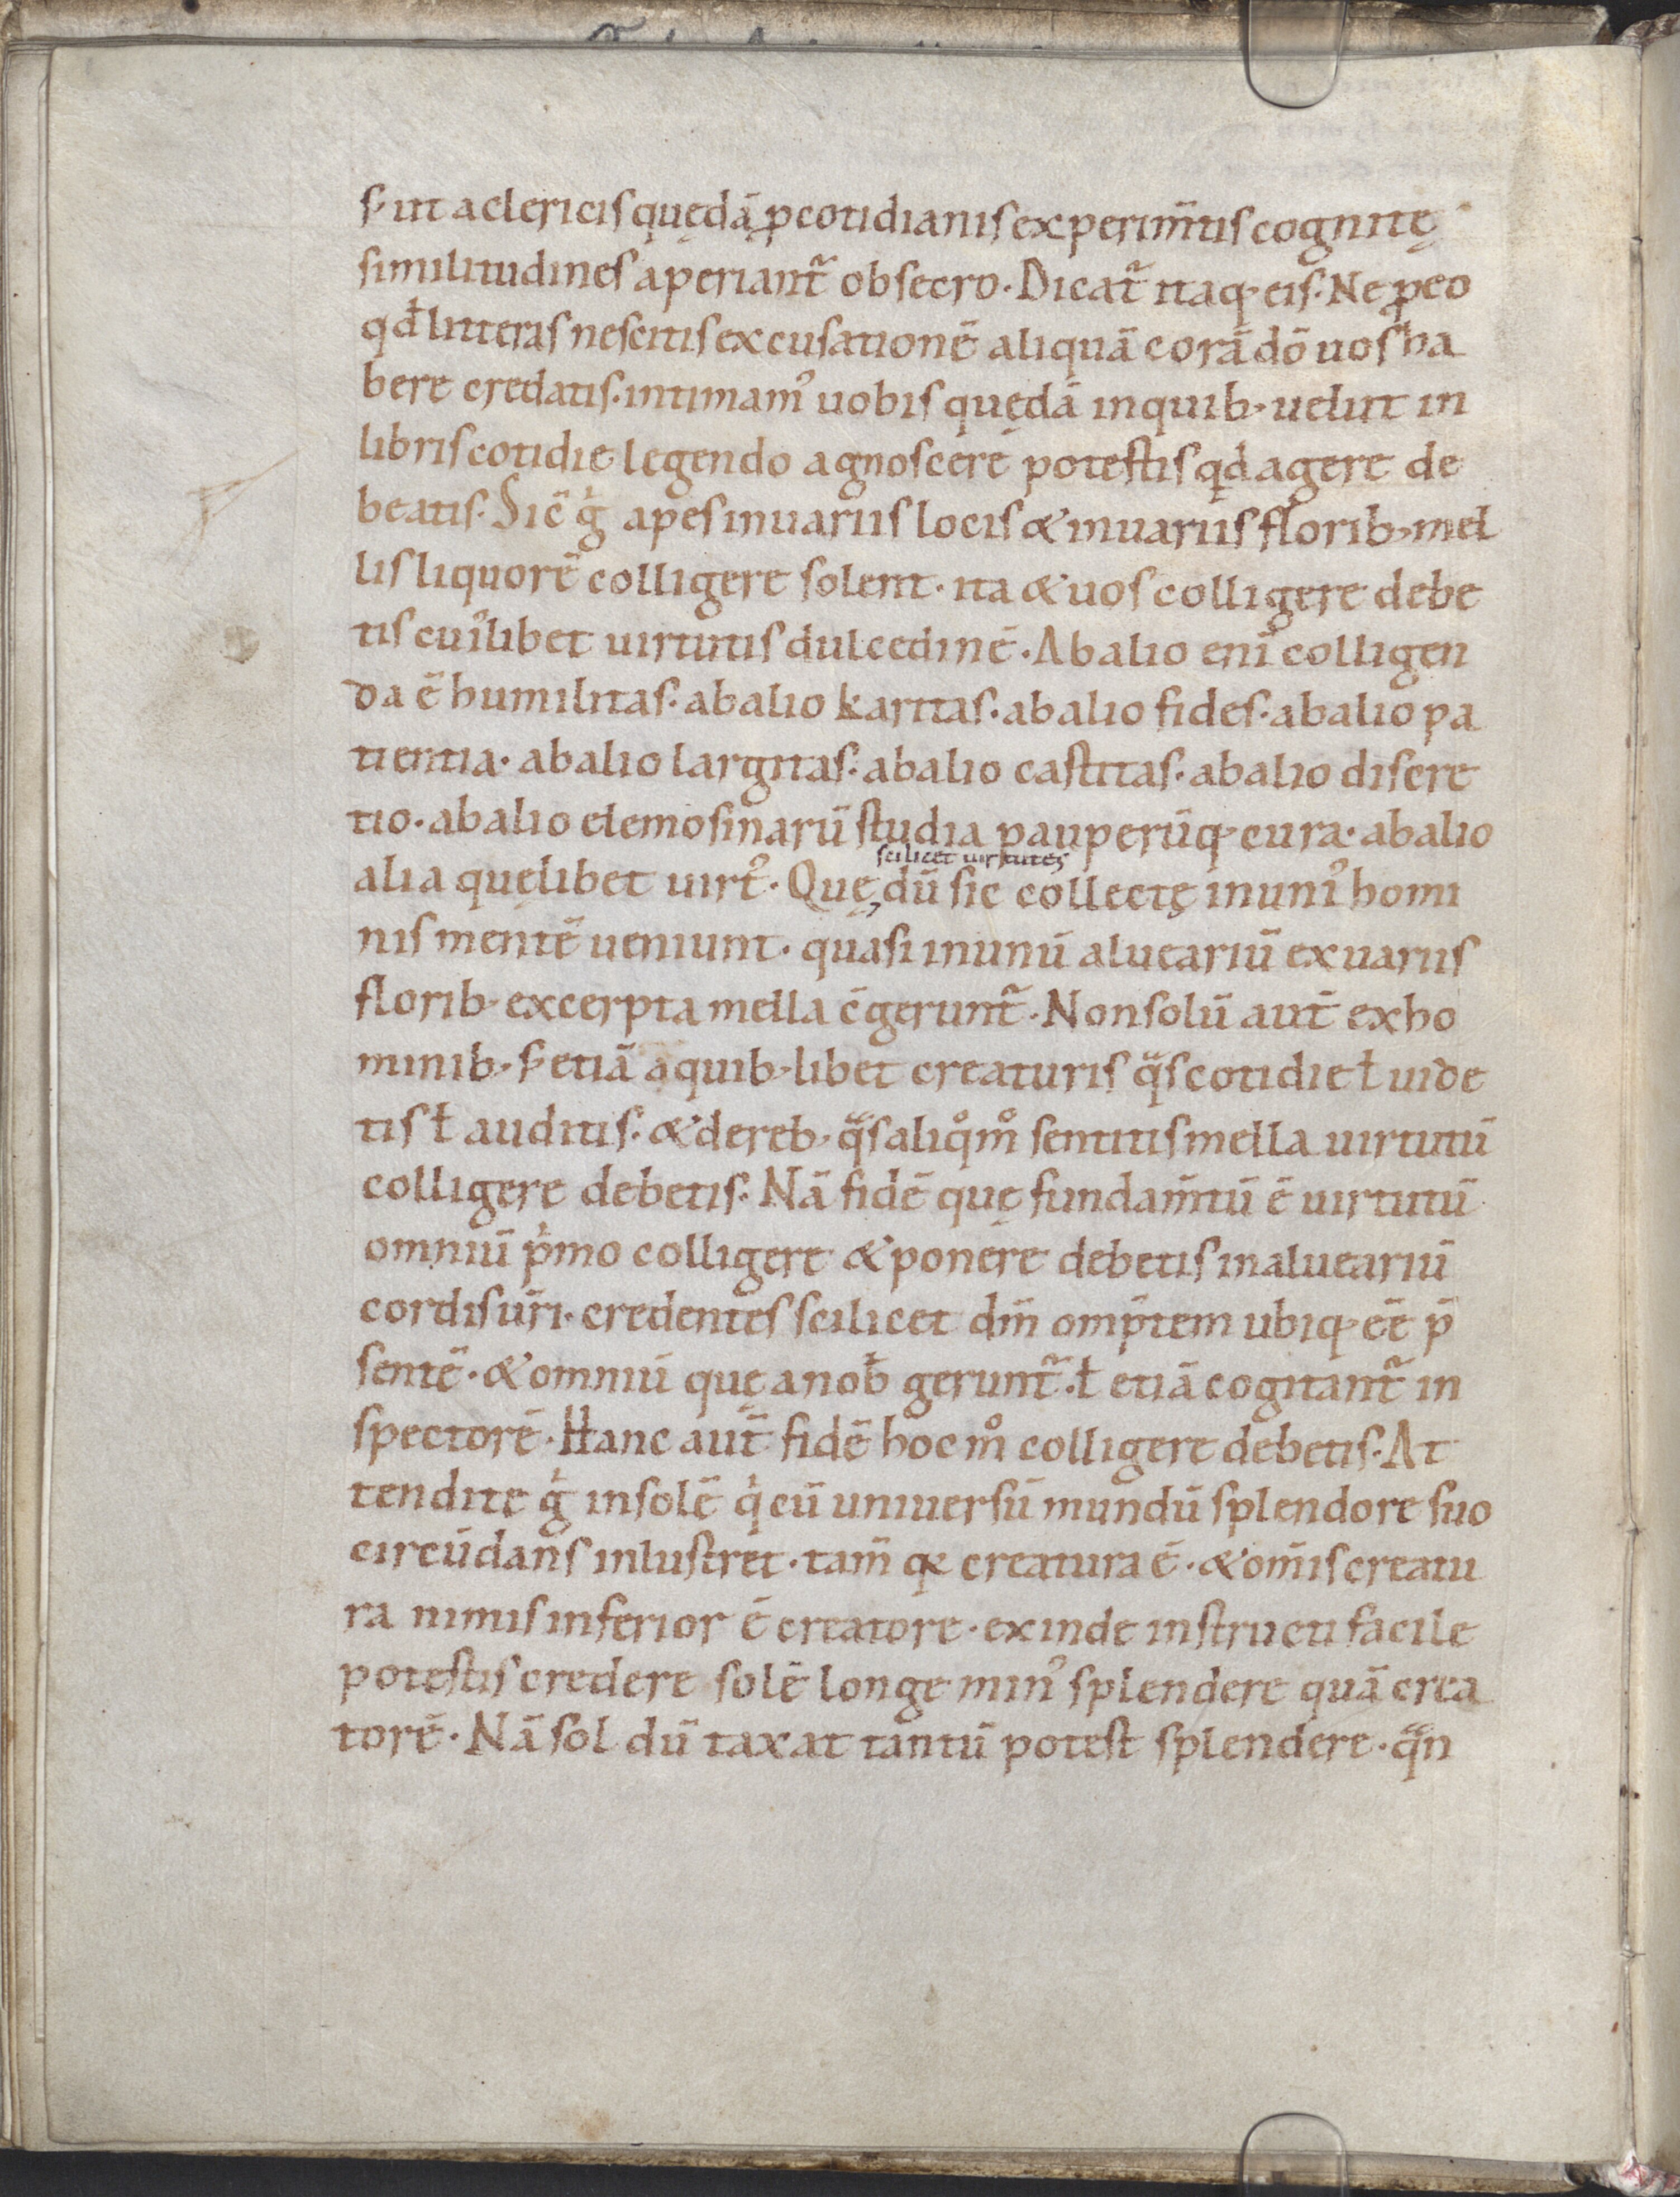 s; ut a clericis quędā ꝑ cotidianis experim̄tis cognitę
similitudines aperiant᷑ obsecro. Dicat᷑ itaq; eis. Ne ꝓ eo
qđ litteris nescitis excusationē aliquā corā dō uos ha
bere credatis. intimam᾽ uobis quędā in quib; uelut in
libris cotidie legendo agnoscere potestis qd agere de
beatis. Sic̄ gͥ apes in uariis locis & in uariis florib; mel
lis liquorē colligere solent. ita & uos colligere debe
tis cui᾽libet uirtutis dulcedinē. Ab alio eni̅ colligen
da ē humilitas. ab alio karitas. ab alio fides. ab alio pa
tientia. ab alio largitas. ab alio castitas. ab alio discre
tio. ab alio elemosinarū studia pauperūq; cura. ab alio
scilicet uirtutes
alia quęlibet uirt᾽. Quę, dū sic collectę in uni᾽ homi
nis mentē ueniunt. quasi in unū alueariū ex uariis
florib; excerpta mella c̄gerunt᷑. Non solū aut̄ ex ho
minib; s; etiā a quib; libet creaturis qͣs cotidie ł uide
tis ł auditis. & de reb; qͣs aliqͦ mͦ sentitis mella uirtutū
colligere debetis. Nā fidē quę fundam̄tū ē uirtutū
omniū pͥmo colligere & ponere debetis in alueariū
cordis ur̄i. credentes scilicet dm̄ omp̄tem ubiq; eē p̄
sentē. & omniū quę a nob̄ gerunt᷑. ł etiā cogitant᷑ in
spectorē. Hanc aut̄ fidē hoc mͦ colligere debetis. At
tendite gͥ in solē qͥ cū uniuersū mundū splendore suo
circūdans inlustret. tam̄ qꝛ creatura ē. & om̄is creatu
ra nimis inferior ē creatore. exinde instructi facile
potestis credere solē longe min᾽ splendere quā crea
torē. Nā sol dū taxat tantū potest splendere. qͣn